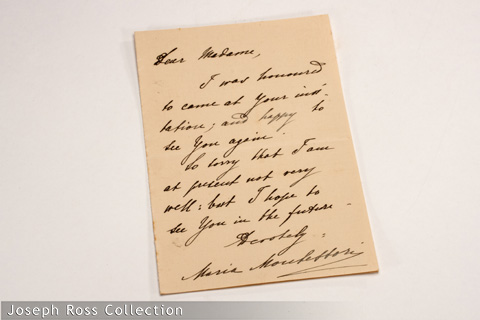 Dear Madame,
I was honoured
to come at Your invi-
tation; and happy to
see You again.
So sorry that I am
at present not very
well: but I hope to
see You in the future -
Devotely:
Maria Montessori
Joseph Ross Collection